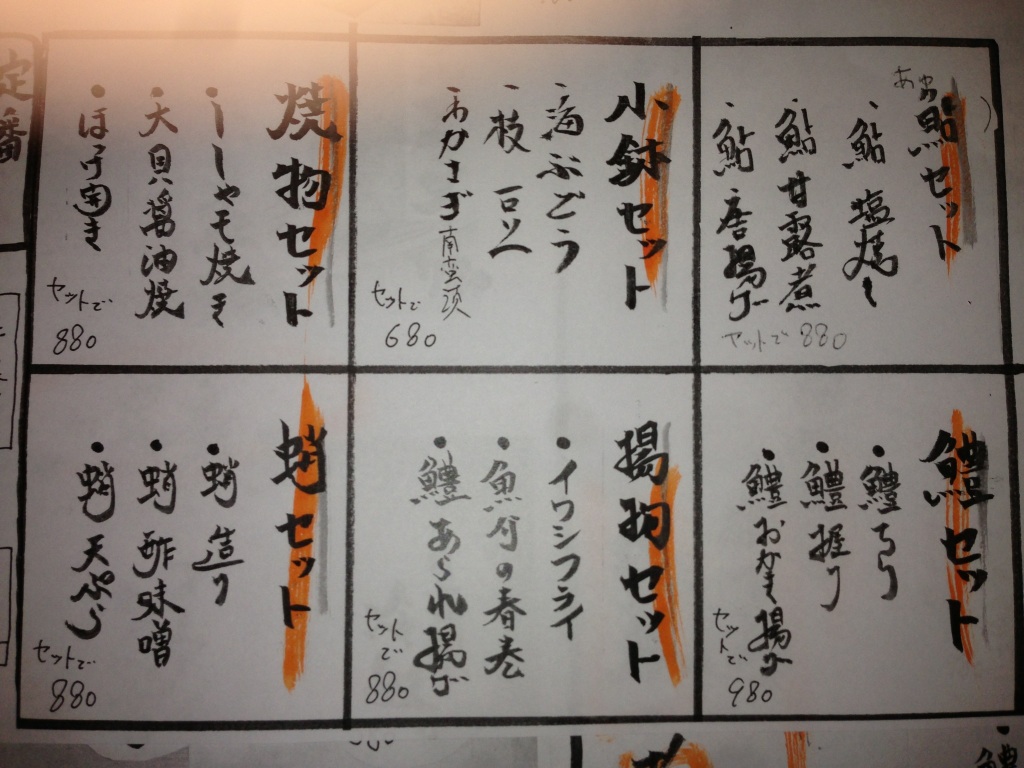 あゆ
鮎セット
鮎塩焼き
鮎甘露煮
鮎唐揚げ
セットで
880
小鉢セット
海ぶどう
枝豆
わかさぎ南蛮漬
セットで
680
焼物セット
ししゃも焼き
大貝醤油焼
ほっけ開き
セットで
880
鱧セット
鱧ちり
鱧握り
鱧おかき揚げ
セットで
980
揚物セット
イワシフライ
魚介の春巻
鱧あられ揚げ
セットで
880
蛸セット
蛸造り
蛸酢味噌
蛸天ぷら
セットで
880
定番